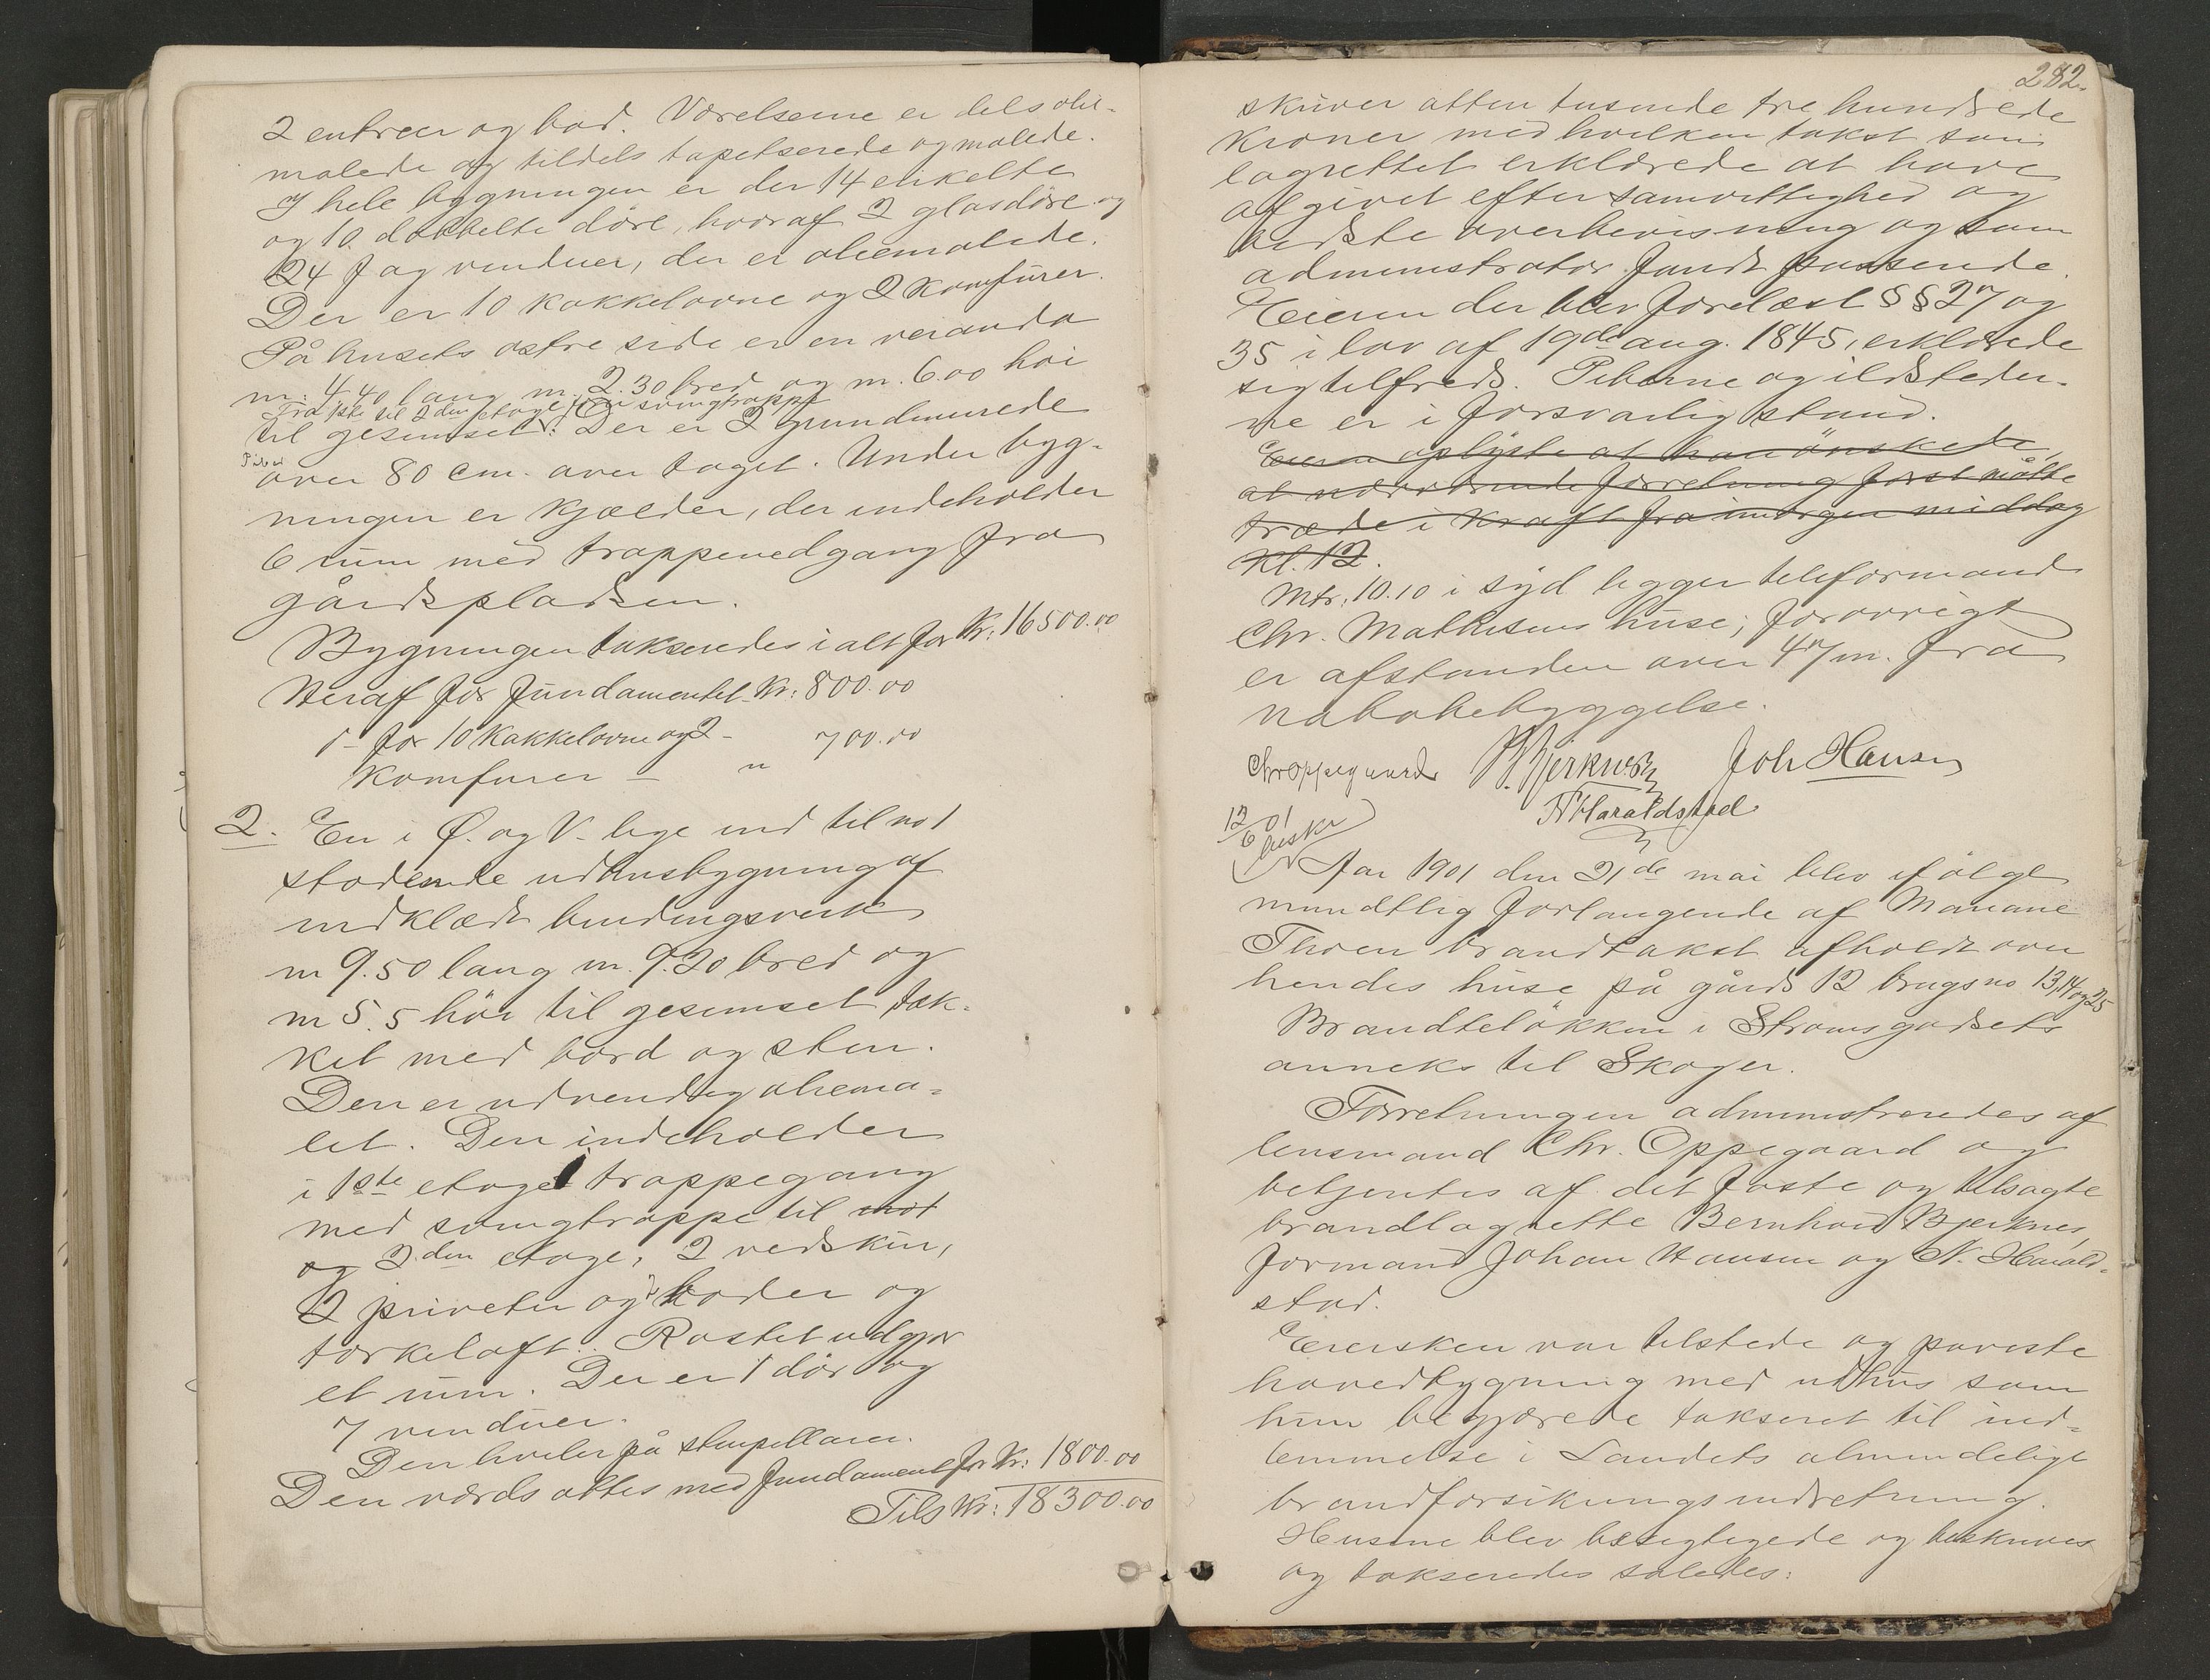 2 entreer og bod. Værelserne er dels olie-
malede og tildels tapetserede og malede.
I hele bygningen er der 14 enkelte
og 10 dobbelte döre, hvoraf 2 glasdöre og
24 fag vinduer, der er oliemalede.
Der er 10 kakkelovne og 2 komfurer.
På husets østre side er en veranda
m: 4.40 lang m. 2.30 bred og m. 6.00 höi
Fra 1ste til 2den etage er svingtrappe
til gesimset. Der er 2 grundmurede
Piber
over 80 cm. over taget. Under byg-
ningen er kjælder, der indeholder
6 rum med trappenedgang fra
gårdspladsen.
Bygningen takseredes ialt for Kr: 16500.00
Heraf for fundamentet Kr: 800.00
d- for 10 kakkelovne og 2 - 700.00
komfurer - "
2. En i Ø. og V. lige ind til no 1
stødende udhusbygning af
indklædt bindingsverk
m 9.50 lang m. 9.20 bred og
m 5.5 höi til gesimset tæk-
ket med bord og sten.
Den er udvendig oliema-
let. Den indeholder
i 1ste etage 1 trappegang
med svingtrappe til mot
og 2den etage, 2 vedskur,
2 priveter og 2 boder og
törkeloft. Rostet udgjör
et rum. Der er 1 dör og
7 vinduer.
Den hviler på stenpillarer.
Den værdsattes med fundament for Kr: 1800.00
Tils Kr: 18300.00
282.
skriver atten tusende tre hundrede
kroner med hvilken takst som
lagrettet erklærede at have
afgivet efter samvittighed og
bedste overbevisning og som
administrator fandt passende.
Eieren der blev forelæst §§ 27 og
35 i lov af 19de aug. 1845, erklærede
sig tilfreds. Piberne og ildstederne-
ne er i forsvarlig stand.
Eieren oplyste at han önskede,
at nærværende forretning först måtte
træde i kraft fra imorgen middag
Kl. 12.
Mtr: 10.10 i syd ligger teleformand
Chr. Mathisens huse; forøvrigt
er afstanden over 47 m. fra
nabobebyggelse.
Chr Oppegaard B. Bjerknes Joh Hansen
N Haraldstad
12/6 01
beskr
Aar 1901 den 21de mai blev ifölge
mundtlig forlangende af Mariane
Thoen brandtakst afholdt over
hendes huse på gårds 12 brugsno 13, 14 og 25
Brandtelökken i Strømsgodsets
anneks til Skoger.
Forretningen administreredes af
lensmand Chr. Oppegaard og
betjentes af det faste og tilsagte
brandlagrette Bernhard Bjerknes,
formand Johan Hansen og N. Harald-
stad.
Eiersken var tilstede og påviste
hovedbygning med udhus som
hun begjærede takseret til ind-
lemmelse i Landets almindelige
brandforsikringsindretning.
Husene blev besigtigede og beskrives
og takseredes således: